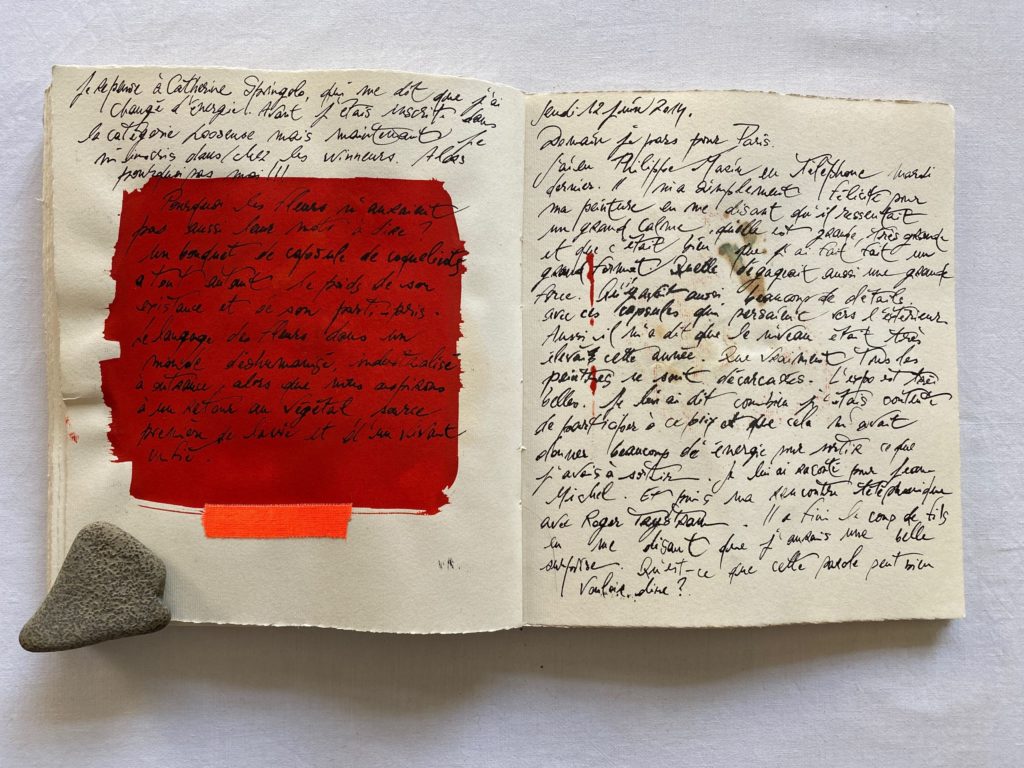 Je repense à Catherine Springolo, qui me dit que j'ai
changé d'énergie. Avant j'étais inscrite dans
la catégorie looseuse mais maintenant je
m'inscris dans/chez les winneurs. Alors
pourquoi pas moi !!!
Pourquoi les fleurs n'auraient
pas aussi leur mot à dire ?
Un bouquet de capsule de coquelicots
a tout autant le poids de son
existance et de son parti-pris.
Le langage des fleurs dans un
monde déshumanisé, industrialisé
à outrance, alors que nous aspirons
à un retour au végétal source
première de la vie et d'un vivant
entier.
Jeudi 12 juin 2014.
Demain je pars pour Paris.
J'ai eu Philippe en téléphone mardi
dernier. Il m'a simplement félicité pour
ma peinture en me disant qu'il ressentait
un grand calme, qu'elle est grande, très grande
et que c'était bien que j'ai fait un
grand format. Quelle dégageait aussi une grande
force. aussi beaucoup de détails
avec ces capsules qui persaient vers l'extérieur
Aussi il m'a dit que le niveau était très
élevait cette année. Que vraiment tous les
peintres se sont décarcassés. L'expo est très
belles. Je lui ai dit combien j'étais contente
de participer à ce prix et que cela m'avait
donner beaucoup de énergie pour sortir ce que
j'avais à sortir. Je lui ai raconté pour Jean-
Michel. Et puis ma rencontre téléphonique
avec Roger. Il a fini le coup de fils
en me disant que j'aurais une belle
surprise. Qu'est-ce que cette parole peut bien
vouloir dire ?